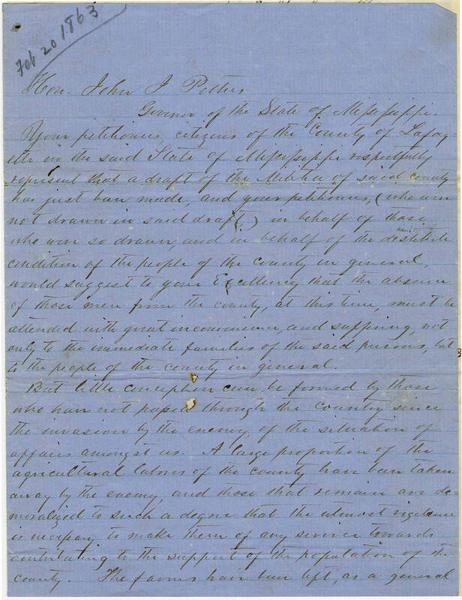 Feb 20 1863
Hon. John J Pettus
Govenor of the State of Mississippi.
Your petitioners, citizens of the County of Lafay-
ette in the said State of Mississippi respectfully
represent that a draft of the Militia of said county
has just been made, and your petitioners, (who were
not drawn in said draft,) in behalf of those
who were so drawn, and in behalf of the destitute
condition of the people of the county in general,
would suggest to your Excellency that the absence
of those men from the county, at this time, must be
attended with great inconvenience, and suffering, not
only to the immediate families of the said persons, but
to the people of the county in general.
But little conception can be formed by those
who have not passed through the country since
the invasion by the enemy, of the situation of
affairs amongst us. A large proportion of the
agricultural labor of the county have been taken
away by the enemy, and those that remain are de-
moralized to such a degree that the utmost vigilance
is necessary to make them of any service towards
contributing to the support of the population of the
county. The farms have been left, as a general